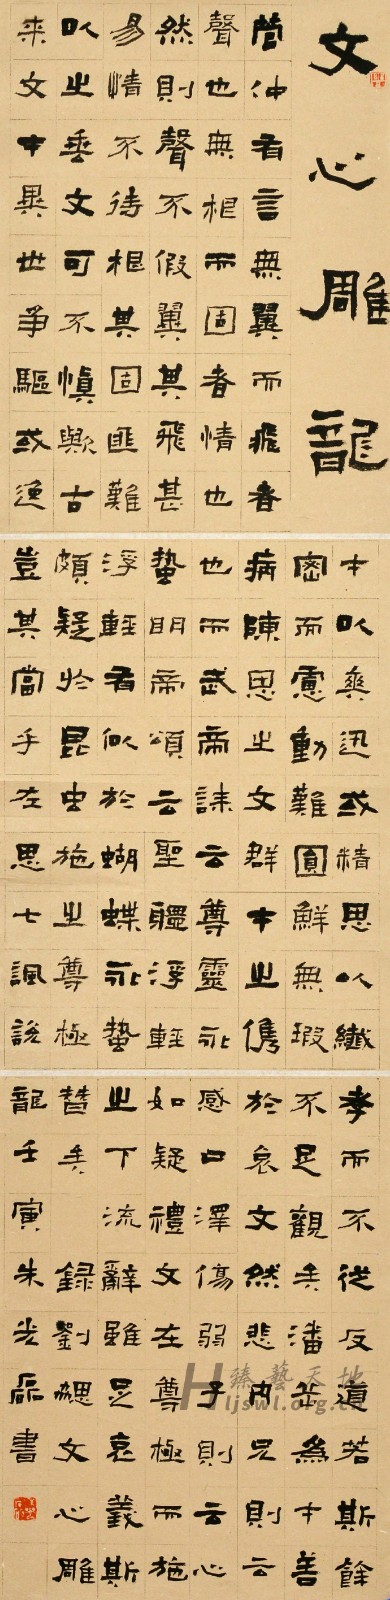 文心雕龍
管仲有言無翼而飛者
聲也無根而固者情也
然則聲不假翼其飛甚
易情不待根其固匪難
以之垂文可不慎歟古
来文才異世爭驅或逸
才以爽迅或精思以纖
密而慮動難圓鮮無瑕
病陳思之文群才之儁
也而武帝誄云尊靈永
蟄明帝頌云聖體浮輕
浮輕有似於蝴蝶永蟄
頗疑於昆虫施之尊極
豈其當乎左思七諷說
孝而不從反道若斯餘
不足觀矣潘岳為才善
於哀文然悲內兄則云
感口澤傷弱子則云心
如疑禮文在尊極而施
之下流辭雖足哀義斯
替矣 錄劉勰文心雕
龍壬寅朱光書
臻藝天地
Hljswl.org.cn